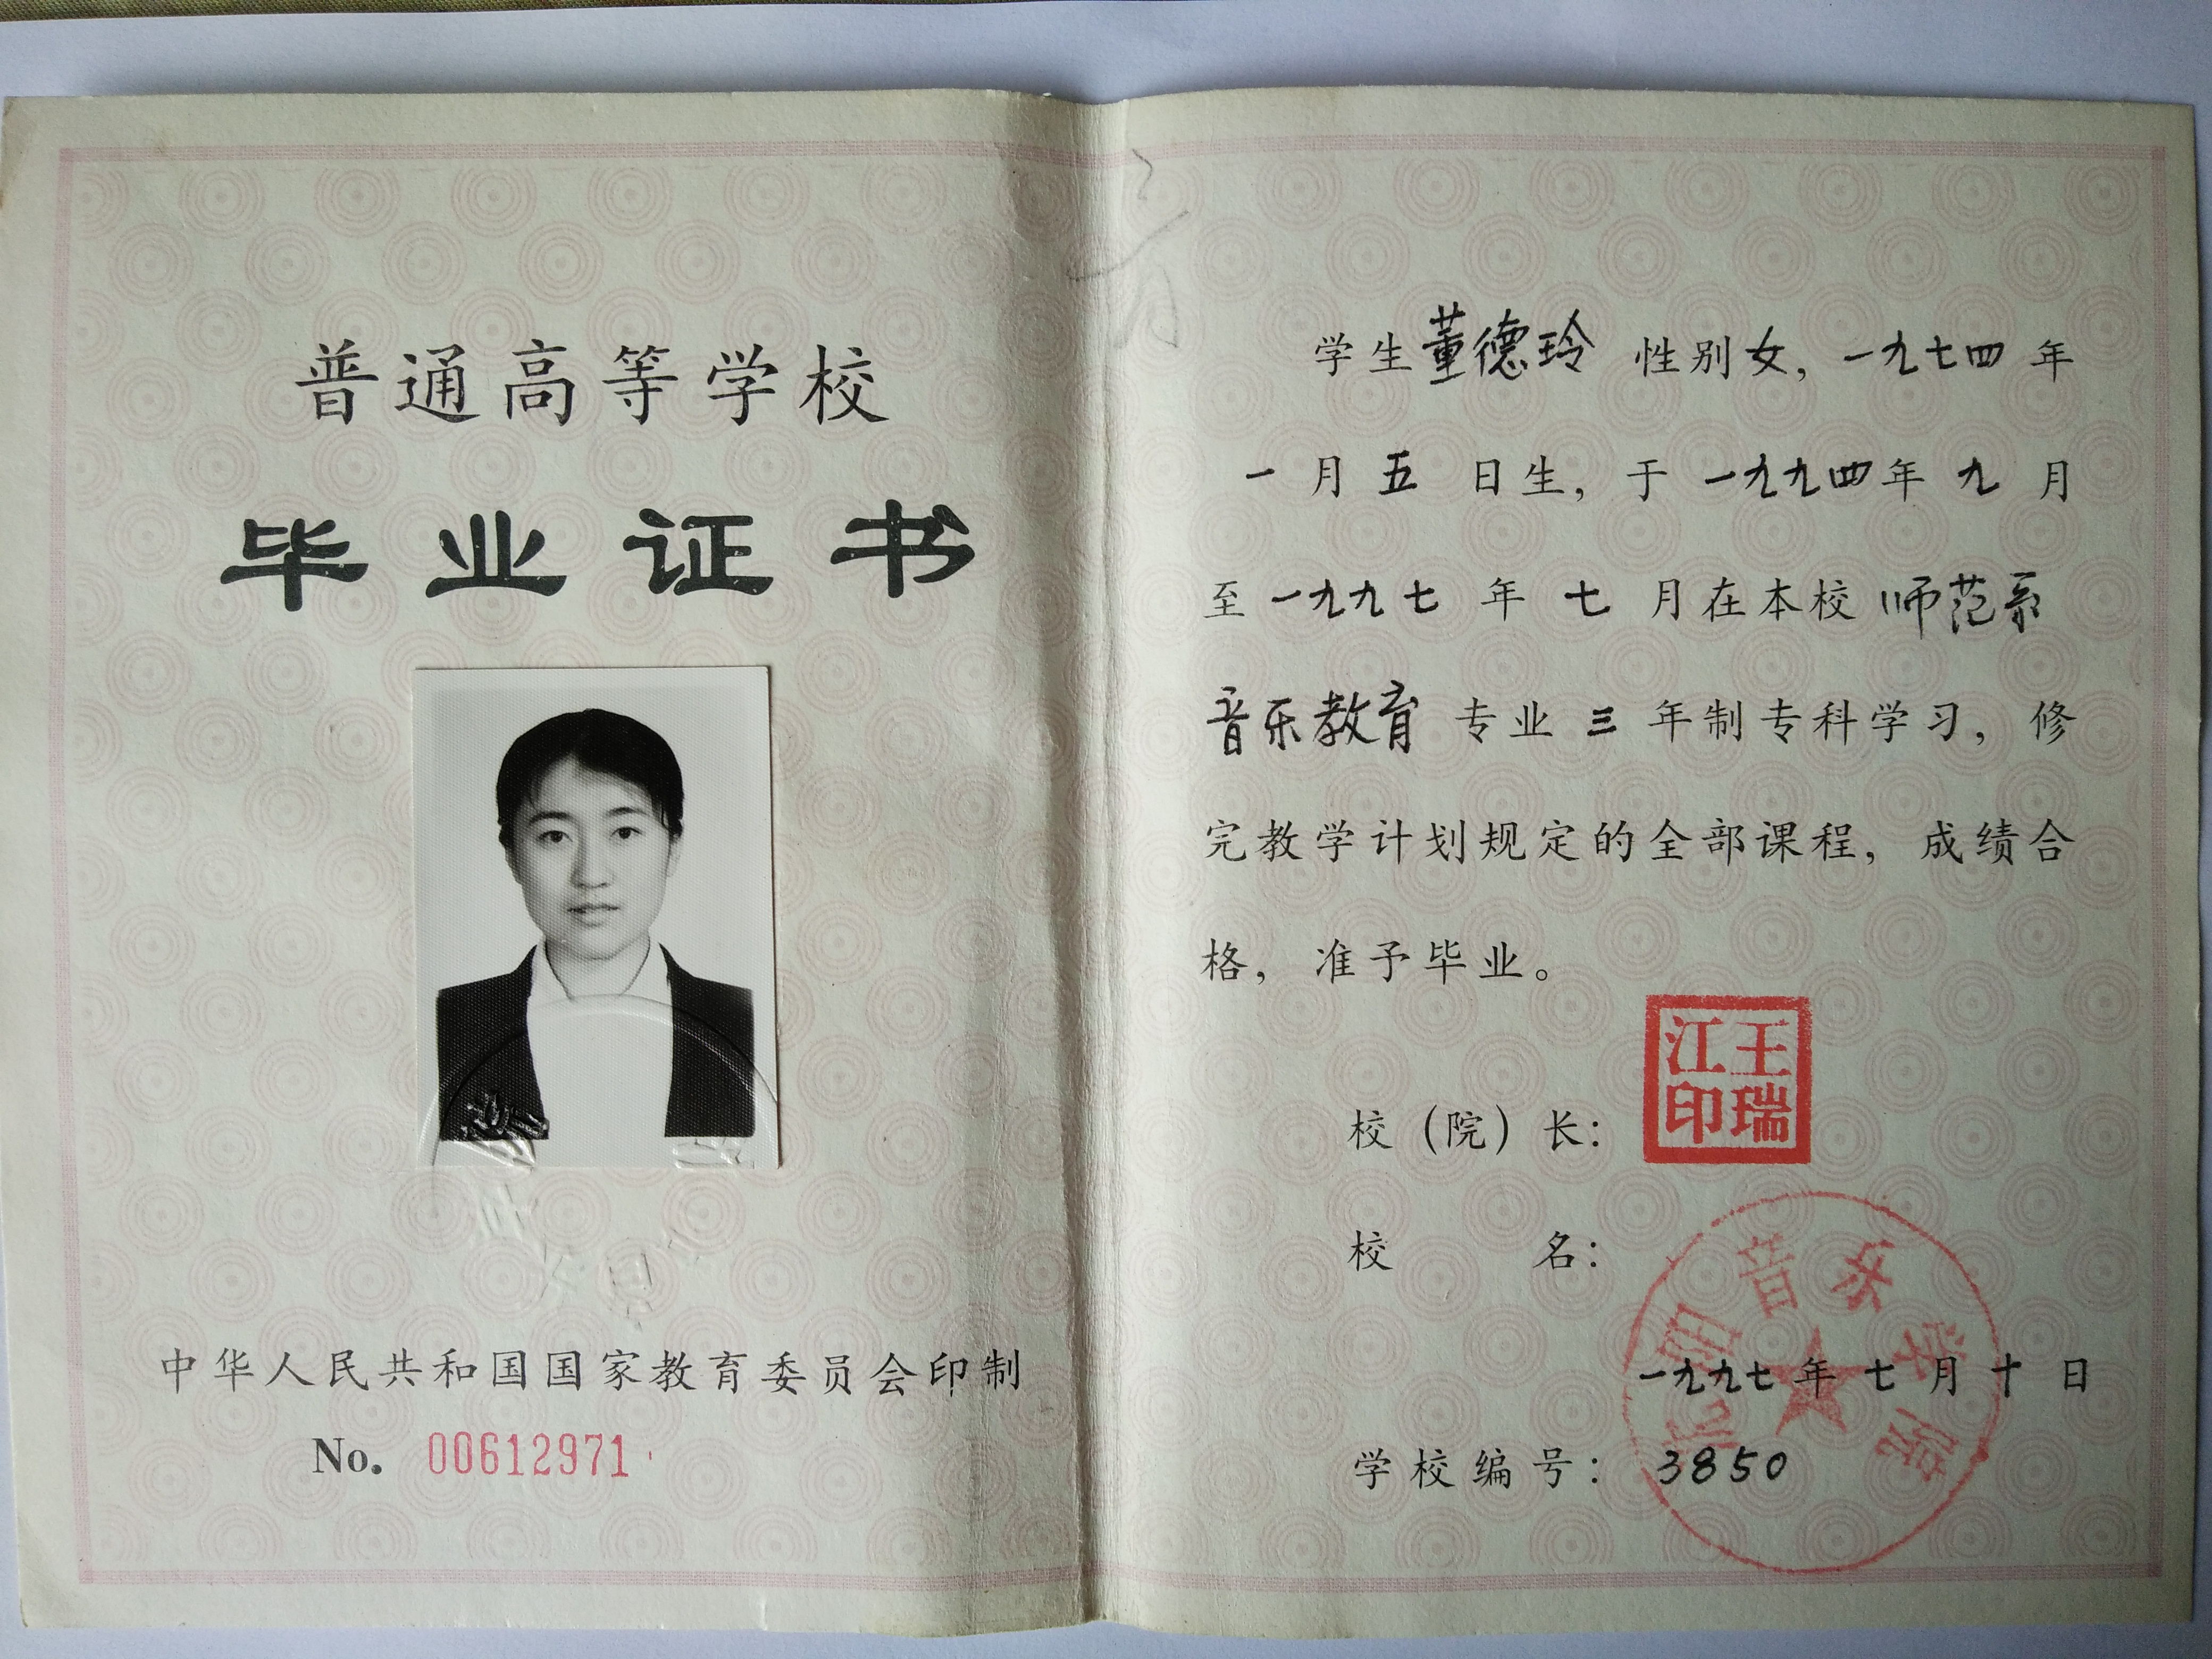 普通高等学校
毕业证书
中华人民共和国国家教育委员会印制
No. 00612971
学生董德玲 性别女，一九七四年
一月五日生，于一九九四年九月
至一九九七年七月在本校师范系
音乐教育专业三年制专科学习，修
完教学计划规定的全部课程，成绩合
格，准予毕业。
校（院）长：
王瑞江印
校名：
音乐学院
一九九七年七月十日
学校编号：3850